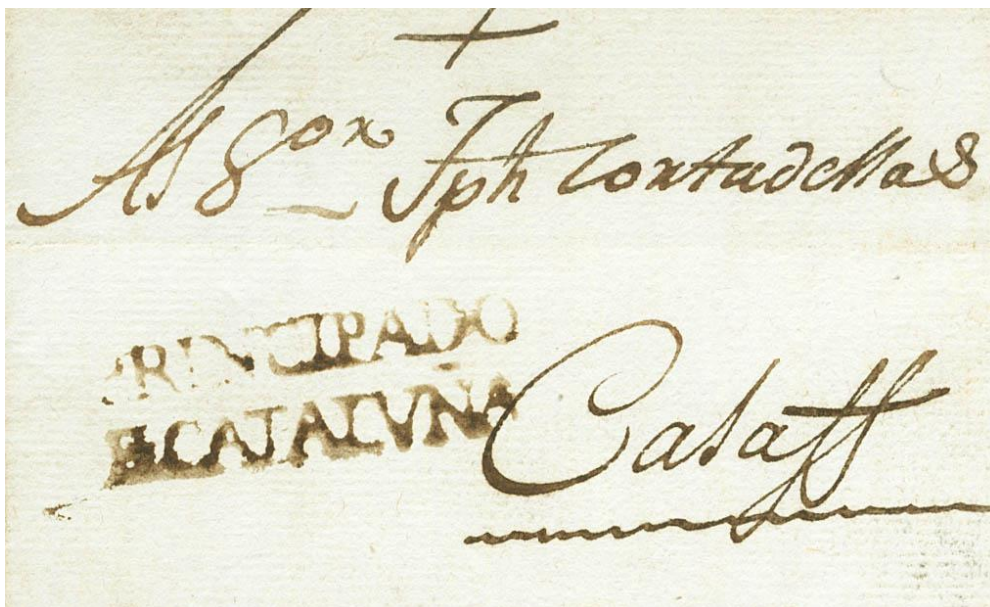 Al Sor Jph Cortadellas
PRINCIPADO
DE CATALUNA
Calaff